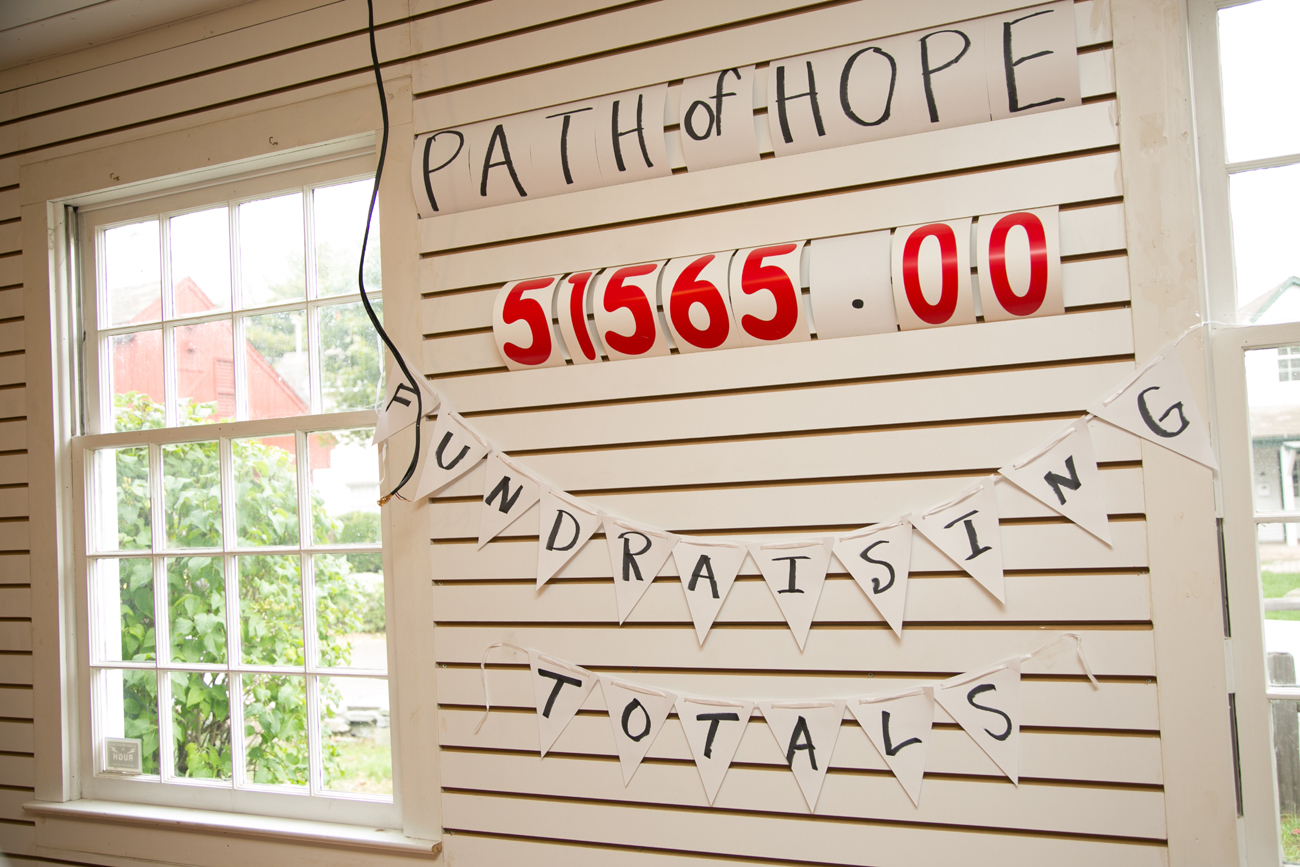 PATH of HOPE
51565.00
FUNDRAISING
TOTALS
HOUR